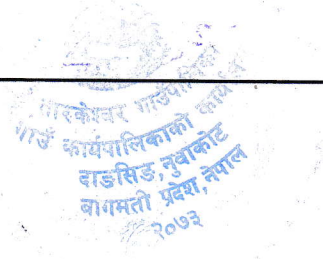 तारकेश्वर गाउँपालिका
गाउँ कार्यपालिकाको कार्यालय
दाङसिङ, नुवाकोट
बागमती प्रदेश, नेपाल
२०७३